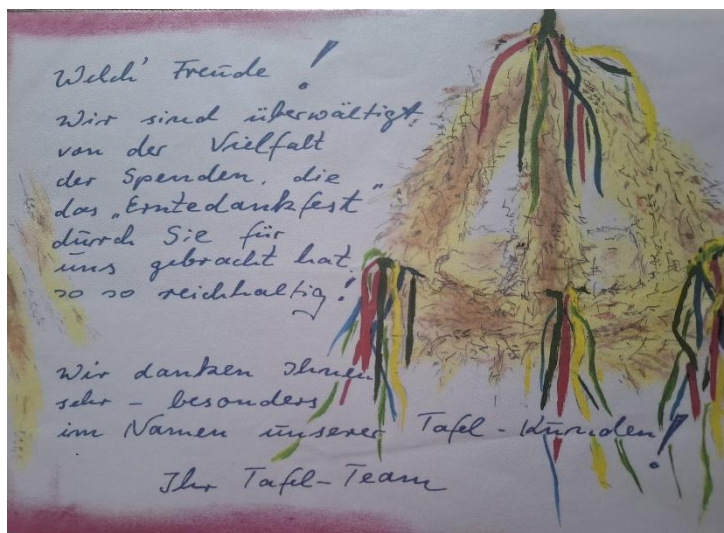 Welch' Freude!
Wir sind überwältigt
von der Vielfalt
der Spenden, die
das „Erntedankfest"
durch Sie für
uns gebracht hat.
so so reichhaltig!
Wir danken Ihnen
sehr - besonders
im Namen unserer Tafel-Kunden!
Ihr Tafel-Team